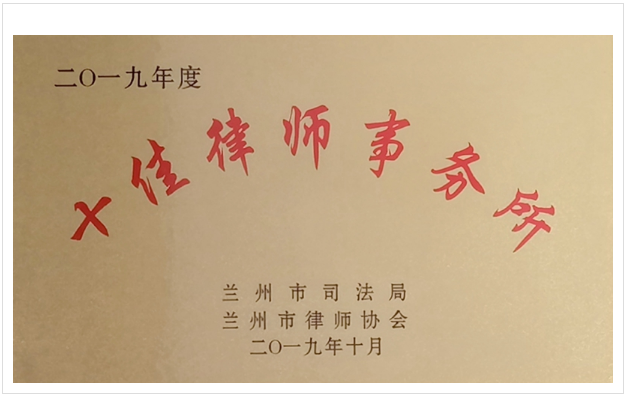 二〇一九年度
十佳律师事务所
兰州市司法局
兰州市律师协会
二〇一九年十月